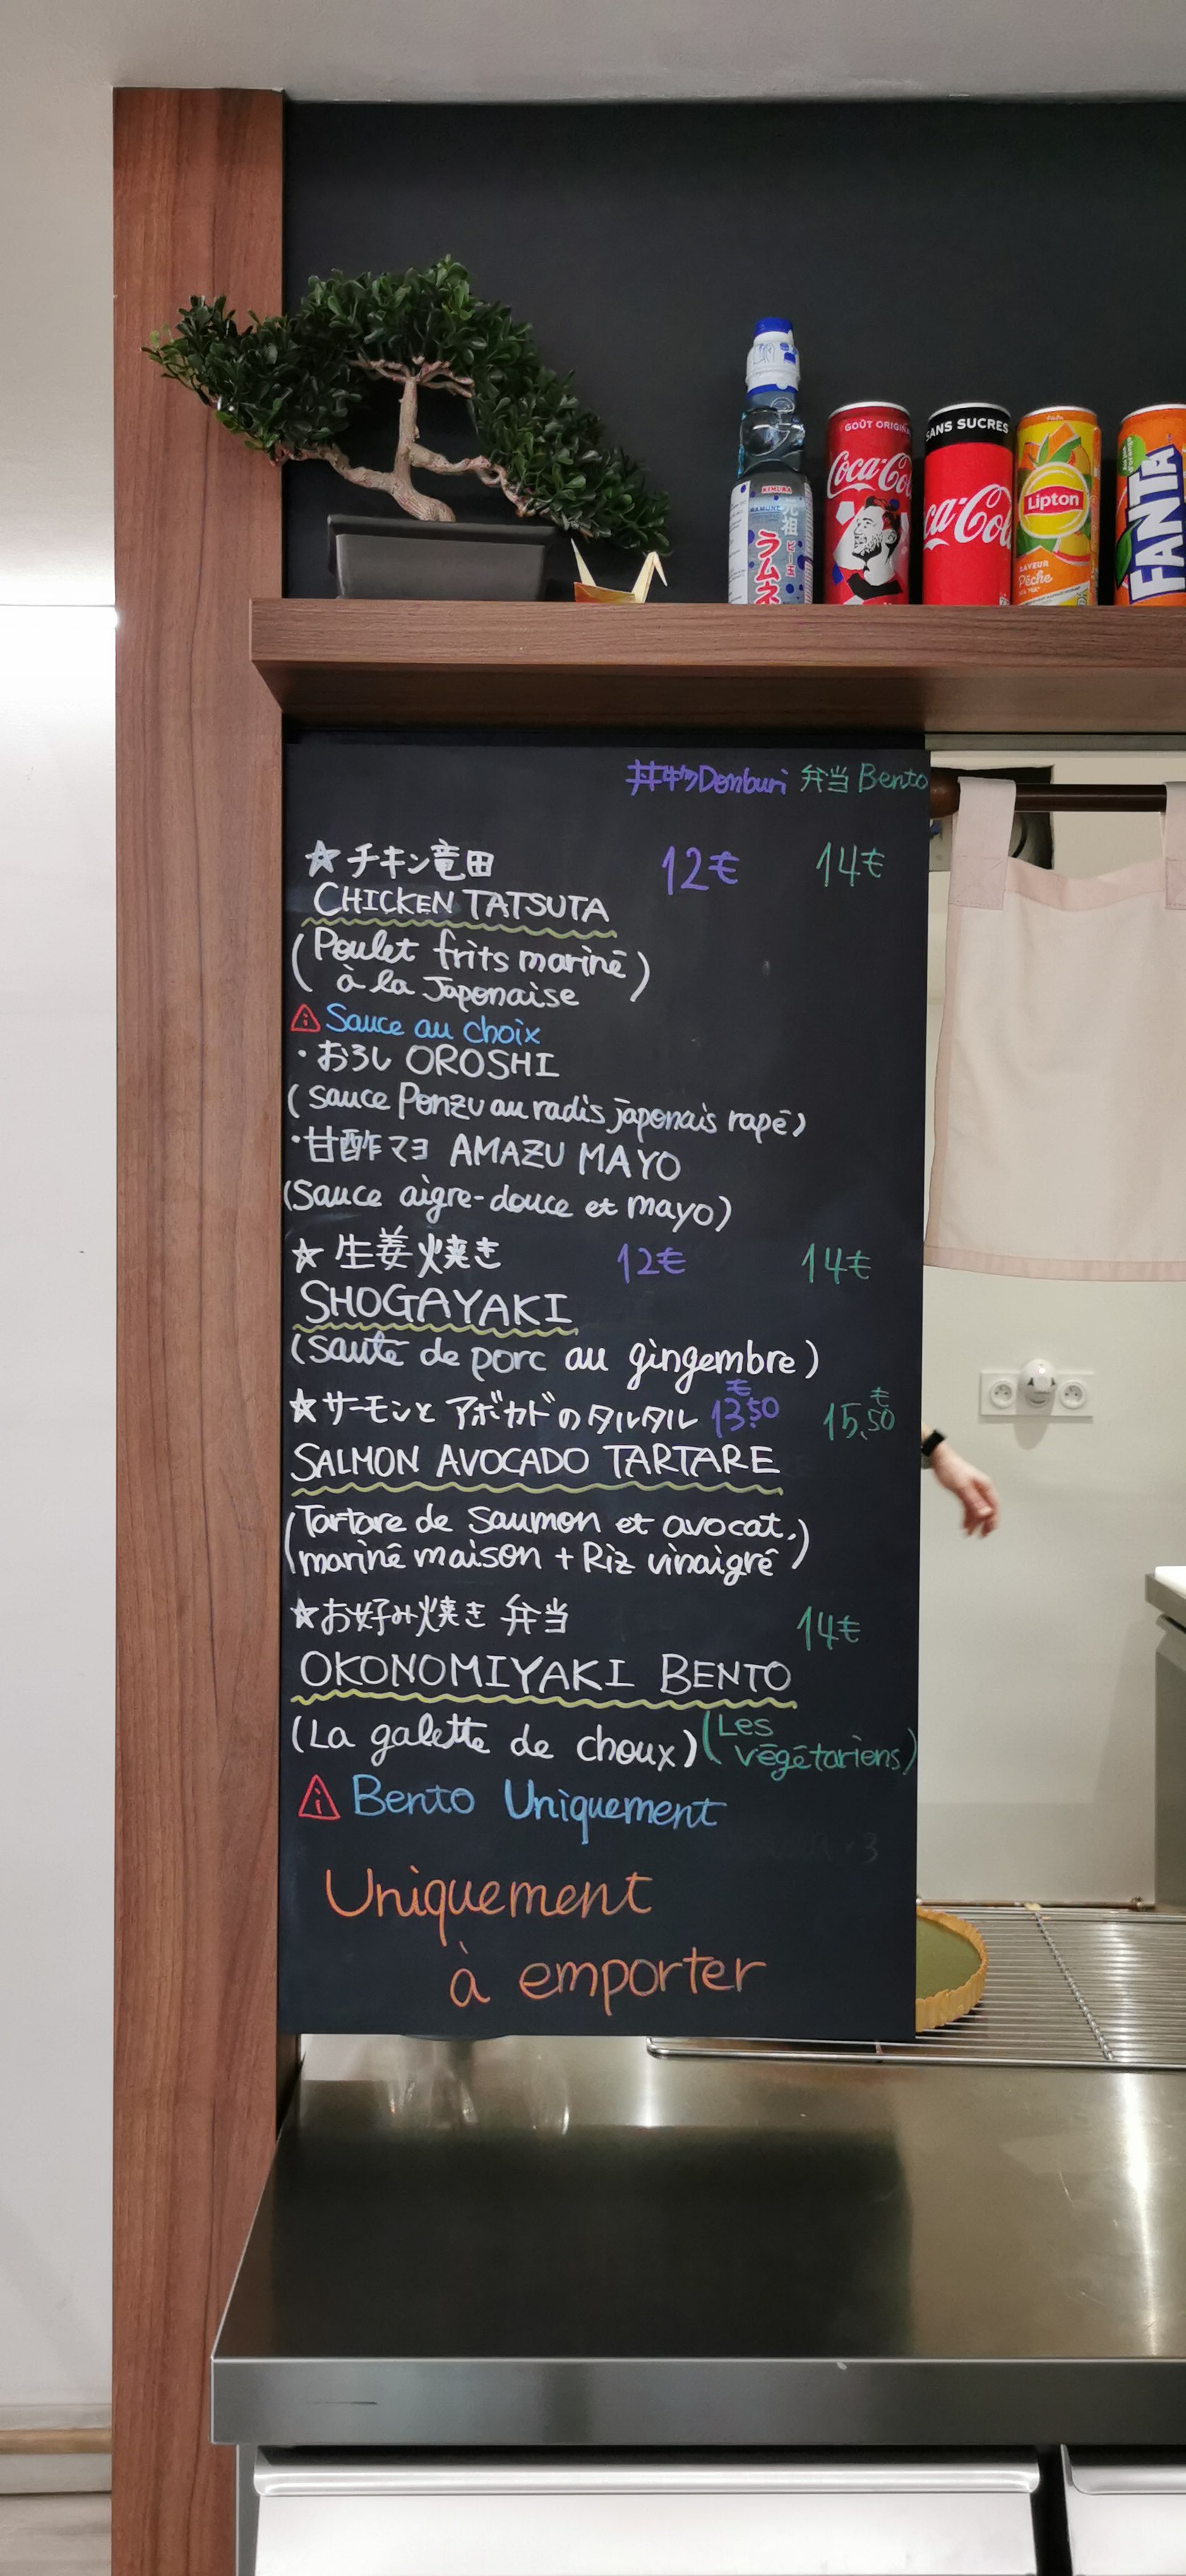 KIMURA
RAMUNE
元祖
ビー玉
ラムネ
GOÛT ORIGIN
Coca-Co
SANS SUCRES
ca-Col
Lipton
SAVEUR
Pêche
FANTA
丼物Donburi 弁当 Bento
★チキン竜田 12€ 14€
CHICKEN TATSUTA
(Poulet frits mariné
à la Japonaise)
Sauce au choix
・おろし OROSHI
(sauce Ponzu au radis japonais rapé)
・甘酢マヨ AMAZU MAYO
(Sauce aigre-douce et mayo)
★ 生姜焼き 12€ 14€
SHOGAYAKI
(sauté de porc au gingembre)
★サーモンと アボカドのタルタル 13,50€ 15,50€
SALMON AVOCADO TARTARE
(Tartare de saumon et avocat,
mariné maison + Riz vinaigré)
★お好み焼き 弁当 14€
OKONOMIYAKI BENTO
(La galette de choux) (Les
végétariens)
Bento Uniquement
Uniquement
à emporter